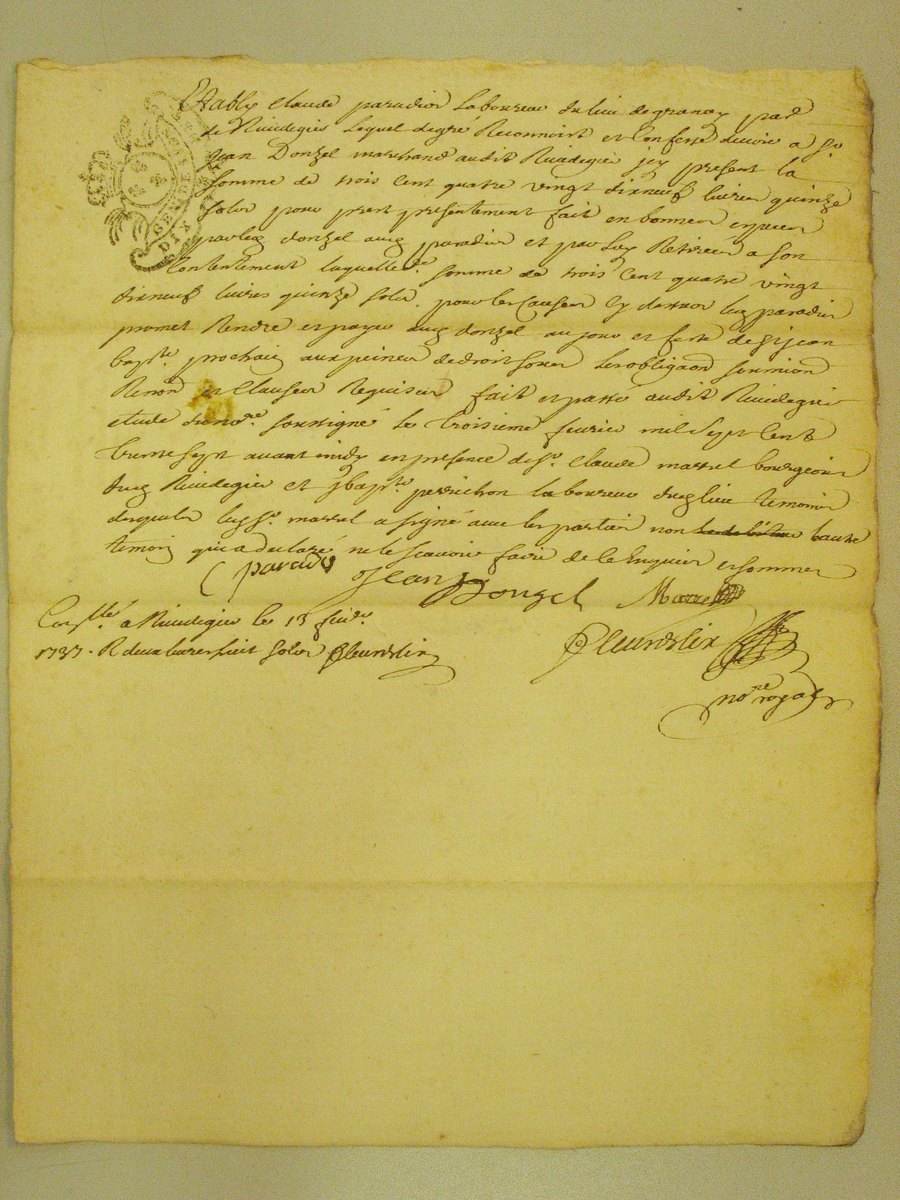 Etably Claude paradior laboureur du lieu de granay par
de Rivedegier lequel de gré Reconnoist et Confesse devoir a Sr
Jean Donzel marchand audit Rivedegier icy present la
somme de trois cent quatre vingt dixneuf livres quinze
solz pour prest presentement fait en bonnes especes
par led donzel aud paradior et par luy Retirée a son
Contentement laquelle de somme de trois cent quatre vingt
dixneuf livres quinze solz pour les causes cy dessus led paradior
promet Rendre et payer aud donzel au jour et feste de St jean
bapte prochain aux peines de droit sous les obligaon soumion
Renon et Clauses Requises fait et passé audit Rivedegier
etude du nore soussigné le troisieme fevrier mil sept cent
trente sept avant midy en presence de Sr Claude martel bourgeois
dud Rivedegier et jbapte perrichon laboureur dud lieu temoins
desquels led Sr martel a signé avec les parties non l'autre
temoin qui a declaré ne le scavoir faire de ce Enquis et sommé
paradis Jean Donzel Martel
Conllé a Rivedegier le 13 fevr
1737. R deux livres huit solz fleurdelix fleurdelix
nore royal
GEN DE LYON
DIX